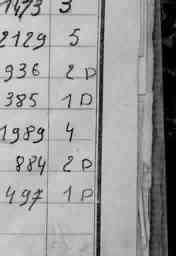 1473 3
2129 5
936 2 D
385 1 D
1989 4
884 2 D
497 1 D